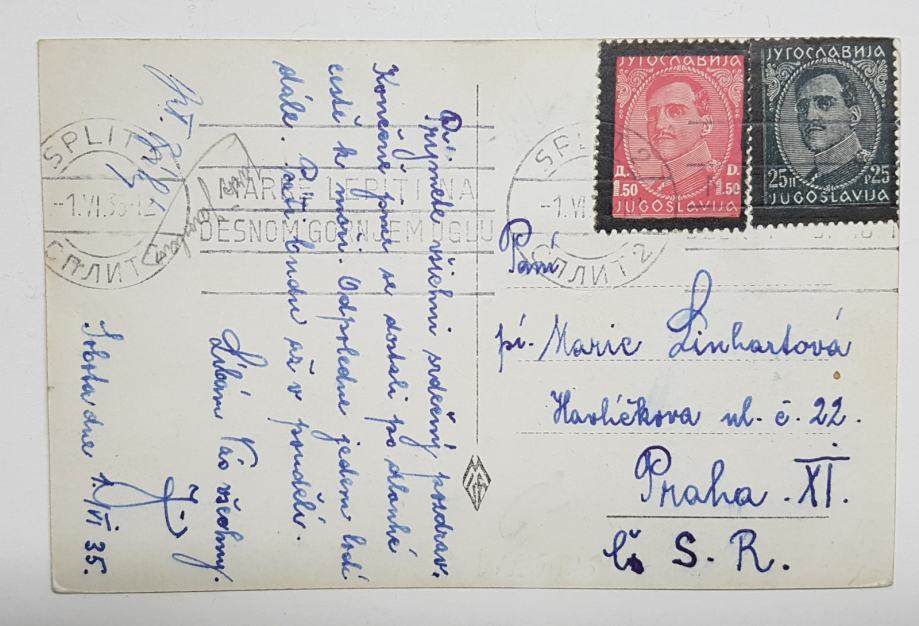 Přijměte všichni srdečný pozdrav.
Konečně jsme se dostali po dlouhé
cestě k moři. Odpoledne jedem lodí
dále. Psát budu až v pondělí.
Líbám Vás všechny.
J.
Sobota dne 1./VI 35.
SPLIT 2
-1.VI.35-12
СПЛИТ 2
MARKE LEPITI NA
DESNOM GORNJEM UGLU
SPLIT 2
-1.VI
СПЛИТ 2
ЈУГОСЛАВИЈА
Д. D.
1.50 1.50
JUGOSLAVIJA
ЈУГОСЛАВИЈА
25п P25
JUGOSLAVIJA
Paní
pí. Marie Linhartová
Havlíčkova ul. č. 22.
Praha XI.
Č. S. R.